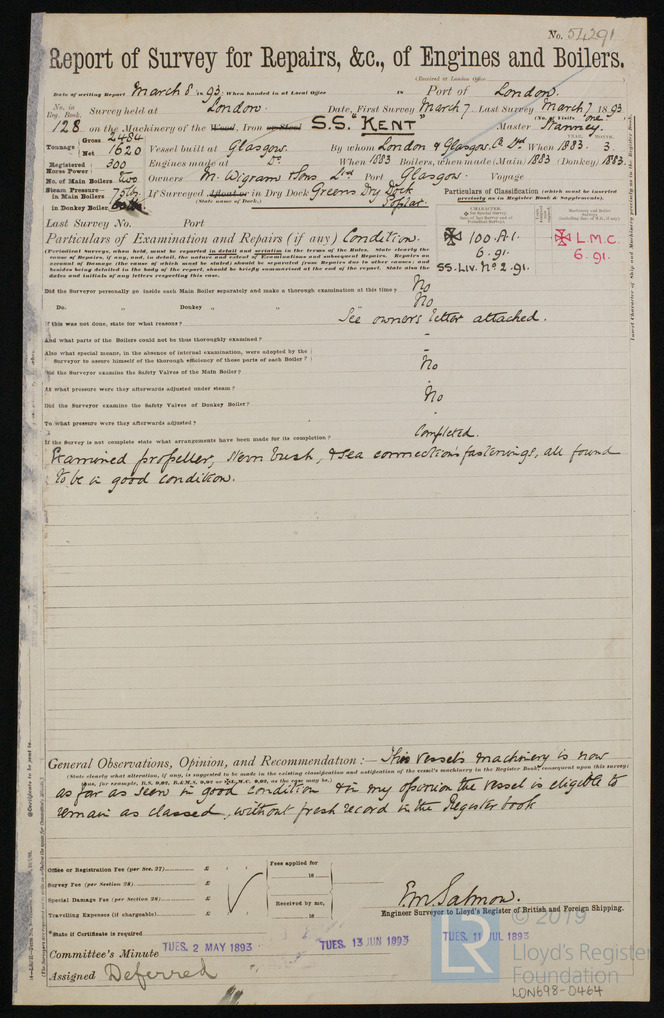 No. 54291
Report of Survey for Repairs, &c., of Engines and Boilers.
(Received at London Office
Date of writing Report March 8 1893 When handed in at Local Office 18 Port of London.
No. in Reg. Book. Survey held at London. Date, First Survey March 7. Last Survey March 7 1893
(No. of Visits one)
128 on the Machinery of the Wood, Iron or Steel S.S. "KENT" Master Stanney.
Tonnage Gross 2484 Net 1620 Vessel built at Glasgow. By whom London & Glasgow Co. Ld. When 1883. 3.
YEAR. MONTH.
Registered Horse Power 300 Engines made at Do. When 1883 Boilers, when made (Main) 1883 (Donkey) 1883.
No. of Main Boilers two Owners M. Wigram & Sons Ltd Port Glasgow. Voyage
Steam Pressure in Main Boilers 75 lbs If Surveyed Afloat or in Dry Dock Greens Dry Dock Poplar.
(State name of Dock.)
in Donkey Boiler
Particulars of Classification (which must be inserted precisely as in Register Book & Supplements).
CHARACTER.
Last Survey No. Port
100.A.1. 6.91. SS. Liv. No 2. 91.
L.M.C. 6.91.
Particulars of Examination and Repairs (if any) Condition.
(Periodical Surveys, when held, must be reported in detail and seriatim in the terms of the Rules. State clearly the
cause of Repairs, if any, and, in detail, the nature and extent of Examinations and subsequent Repairs. Repairs on
account of Damage (the cause of which must be stated) should be separated from Repairs due to other causes; and
besides being detailed in the body of the report, should be briefly summarised at the end of the report. State also the
dates and initials of any letters respecting this case.
Did the Surveyor personally go inside each Main Boiler separately and make a thorough examination at this time? No
Do. " Donkey " " No
If this was not done, state for what reasons? See owners letter attached.
And what parts of the Boilers could not be thus thoroughly examined? –
Also what special means, in the absence of internal examination, were adopted by the
Surveyor to assure himself of the thorough efficiency of those parts of each Boiler? –
Did the Surveyor examine the Safety Valves of the Main Boiler? No
At what pressure were they afterwards adjusted under steam?
Did the Surveyor examine the Safety Valves of Donkey Boiler? No
To what pressure were they afterwards adjusted?
If the Survey is not complete state what arrangements have been made for its completion? Completed.
Examined propeller, stern bush, & sea connections fastenings, all found
to be in good condition.
General Observations, Opinion, and Recommendation :— This vessel's machinery is now
(State clearly what alteration, if any, is suggested to be made in the existing classification and notification of the vessel's machinery in the Register Book consequent upon this survey;
as far as seen in good condition & in my opinion the vessel is eligible to
remain as classed, without fresh record in the Register book
Office or Registration Fee (per Sec. 27) £
Survey Fee (per Section 28) £
Special Damage Fee (per Section 28) £
Travelling Expenses (if chargeable) £
Fees applied for
18
Received by me,
18
E. M. Salmon.
Engineer Surveyor to Lloyd's Register of British and Foreign Shipping.
*State if Certificate is required
Committee's Minute TUES. 2 MAY 1893 TUES. 13 JUN 1893 TUES. 11 JUL 1893
Assigned Deferred
© 2019
LR
Lloyd's Register
Foundation
LON698-0464